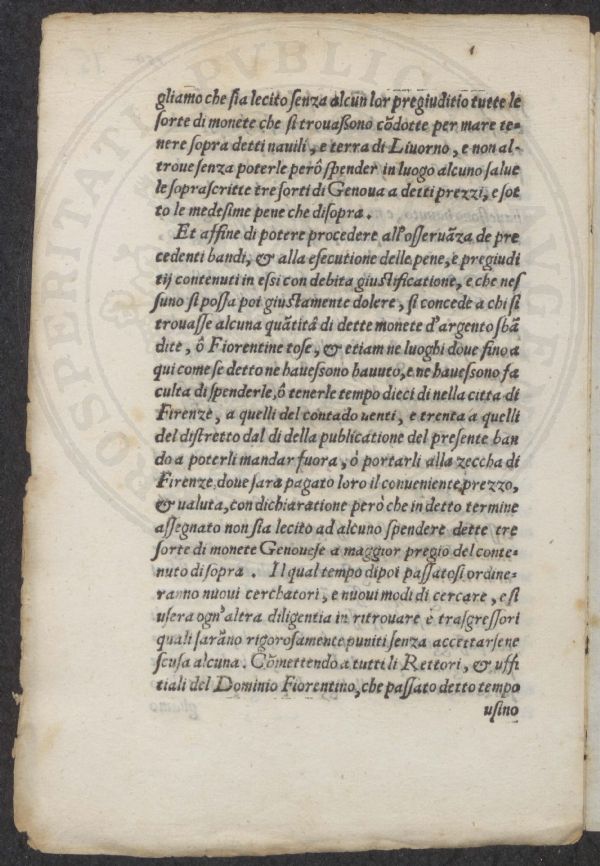 gliamo che sia lecito senza alcun lor pregiuditio tutte le
sorte di monete che si trouassono cõdotte per mare te-
nere sopra detti nauili, e terra di Liuorno, e non al-
troue senza poterle però spender in luogo alcuno salue
le soprascritte tre sorti di Genoua a detti prezzi, e sot
to le medesime pene che disopra.
Et affine di potere procedere all'osseruãza de pre
cedenti bandi, & alla esecutione delle pene, e pregiudi
tij contenuti in essi con debita giustificatione, e che nes
suno si possa poi giustamente dolere, si concede a chi si
trouasse alcuna quãtità di dette monete d'argento sbã
dite, ô Fiorentine tose, & etiam ne luoghi doue fino a
qui come se detto ne hauessono hauuto, e ne hauessono fa
culta di spenderle, ô tenerle tempo dieci di nella citta di
Firenze, a quelli del contado uenti, e trenta a quelli
del distretto dal di della publicatione del presente ban
do a poterli mandar fuora, ò portarli alla zeccha di
Firenze, doue sara pagato loro il conueniente prezzo,
& ualuta, con dichiaratione però che in detto termine
assegnato non sia lecito ad alcuno spendere dette tre
sorte di monete Genouese a maggior pregio del conte-
nuto di sopra. Il qual tempo dipoi passatosi ordine-
ranno nuoui cerchatori, e nuoui modi di cercare, e si
usera ogn'altra diligentia in ritrouare è trasgressori
quali sarãno rigorosamente puniti senza accettarsene
scusa alcuna. Cõmettendo a tutti li Rettori, & uffi
tiali del Dominio Fiorentino, che passato detto tempo
usino